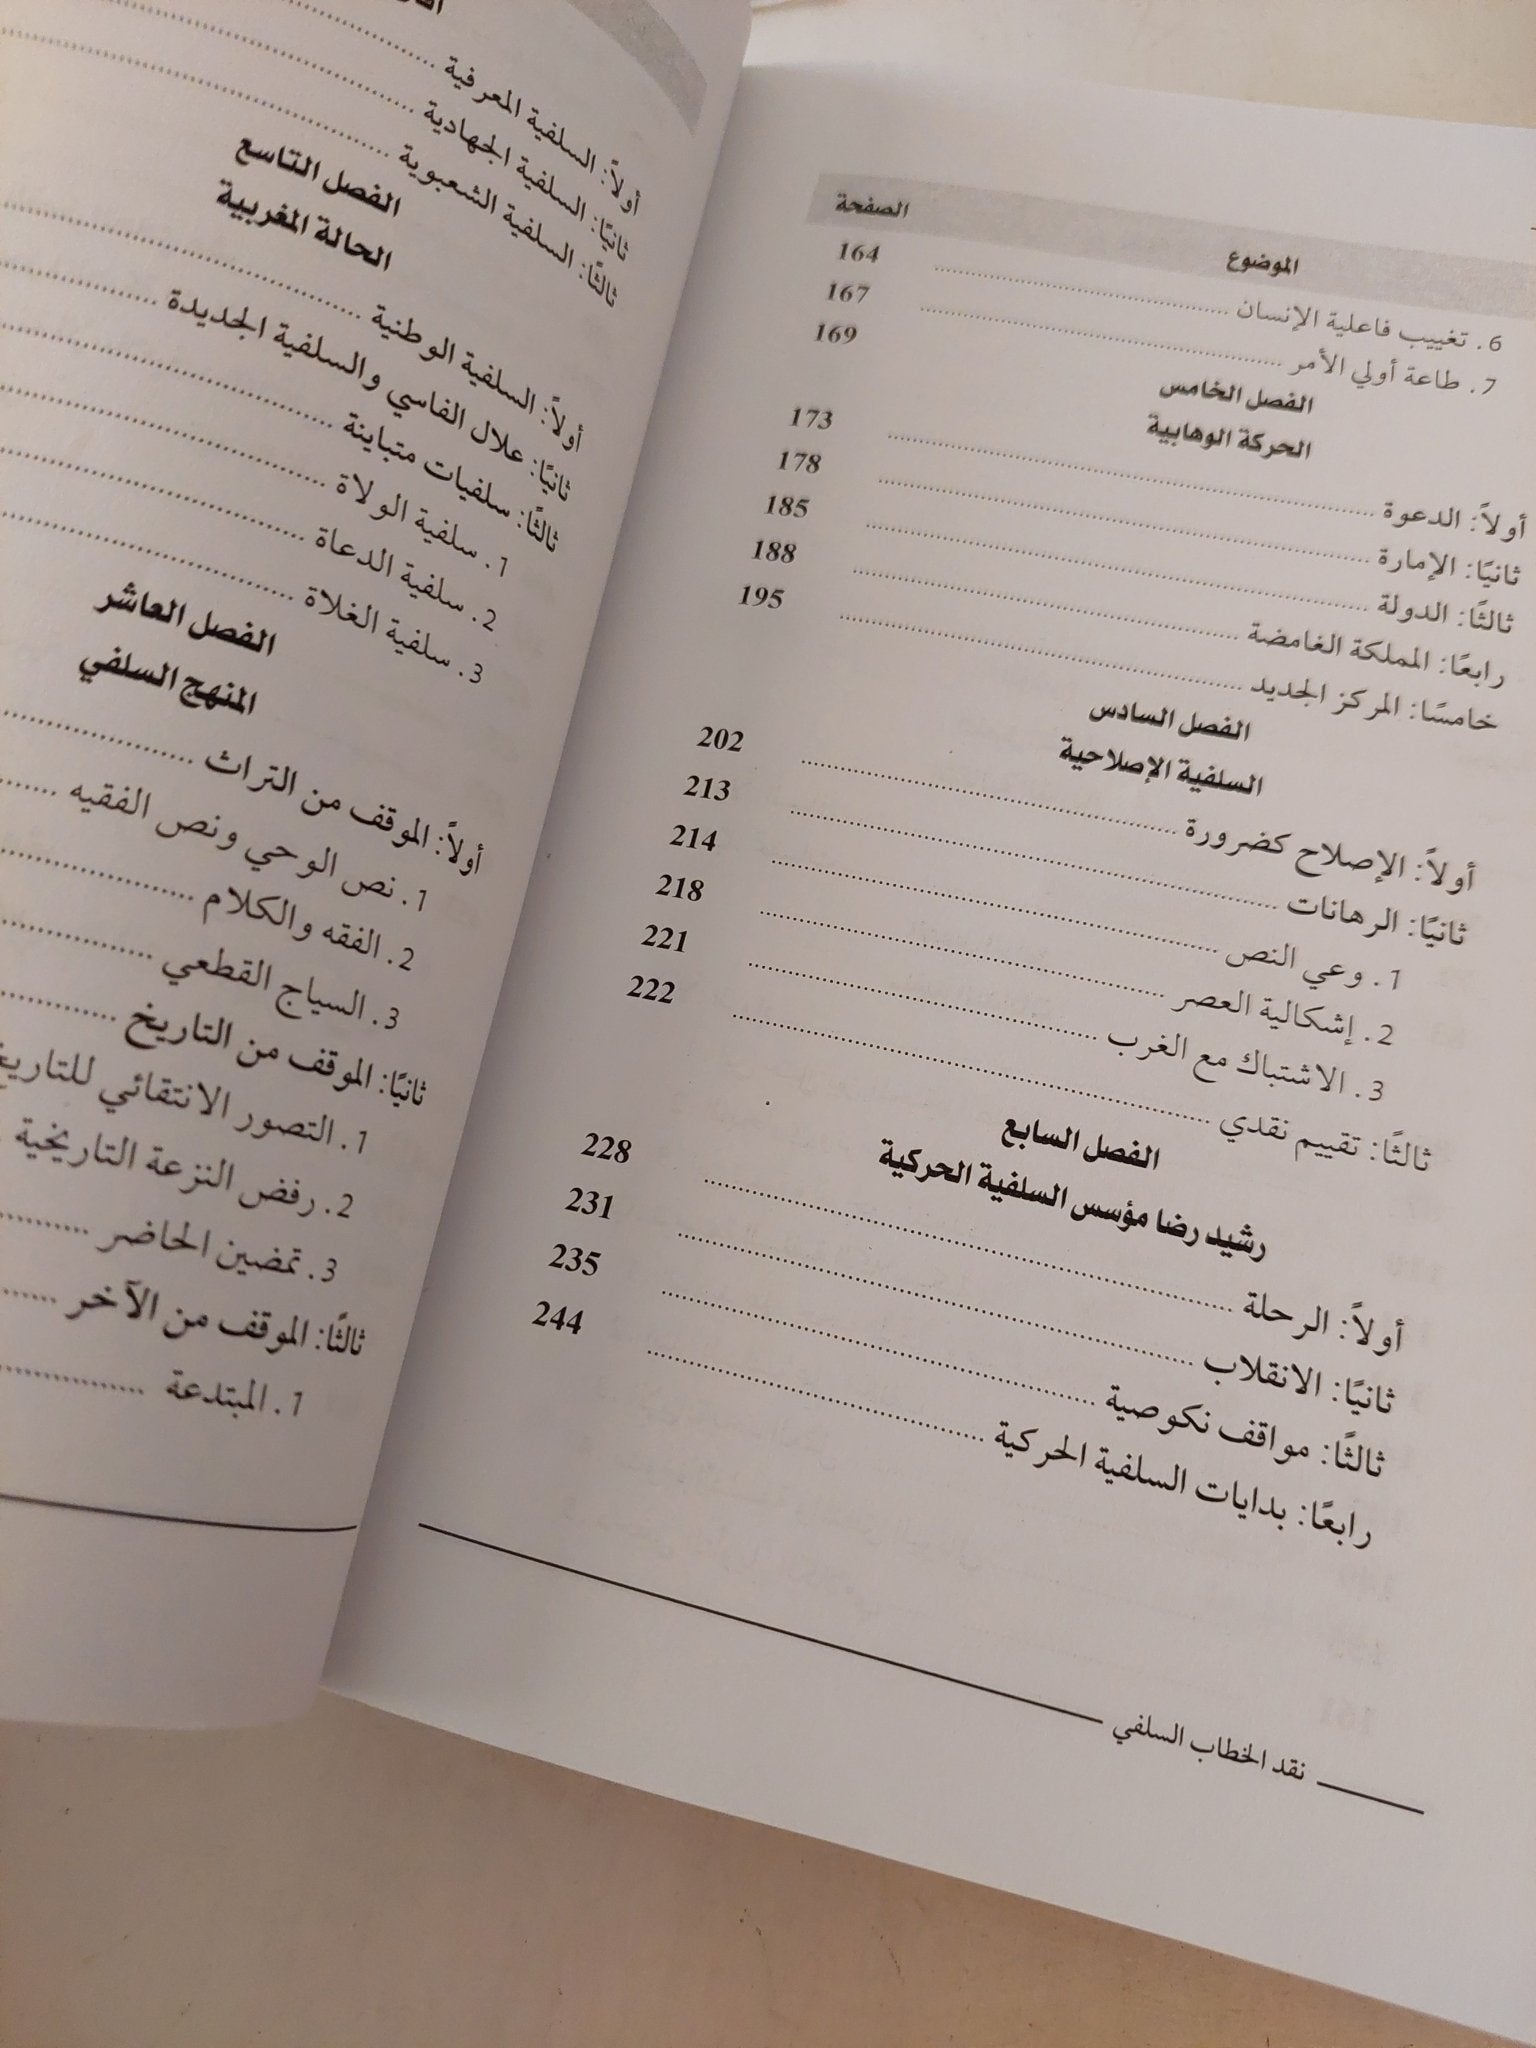 الموضوع الصفحة
6. تغييب فاعلية الإنسان 164
7. طاعة أولي الأمر 167
الفصل الخامس 169
الحركة الوهابية
أولاً: الدعوة 173
ثانيًا: الإمارة 178
ثالثًا: الدولة 185
رابعًا: المملكة الغامضة 188
خامسًا: المركز الجديد 195
الفصل السادس
السلفية الإصلاحية
أولاً: الإصلاح كضرورة 202
ثانيًا: الرهانات 213
1. وعي النص 214
2. إشكالية العصر 218
3. الاشتباك مع الغرب 221
ثالثًا: تقييم نقدي 222
الفصل السابع
رشيد رضا مؤسس السلفية الحركية
أولاً: الرحلة 228
ثانيًا: الانقلاب 231
ثالثًا: مواقف نكوصية 235
رابعًا: بدايات السلفية الحركية 244
نقد الخطاب السلفي
أولاً: السلفية المعرفية
ثانيًا: السلفية الجهادية
ثالثًا: السلفية الشعبوية
الفصل التاسع
الحالة المغربية
أولاً: السلفية الوطنية
ثانيًا: علال الفاسي والسلفية الجديدة
ثالثًا: سلفيات متباينة
1. سلفية الولاة
2. سلفية الدعاة
3. سلفية الغلاة
الفصل العاشر
المنهج السلفي
أولاً: الموقف من التراث
1. نص الوحي ونص الفقيه
2. الفقه والكلام
3. السياج القطعي
ثانيًا: الموقف من التاريخ
1. التصور الانتقائي للتاريخ
2. رفض النزعة التاريخية
3. تمضين الحاضر
ثالثًا: الموقف من الآخر
1. المبتدعة